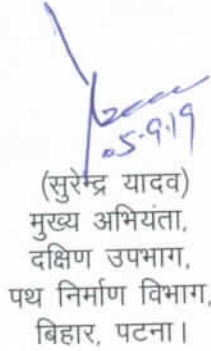 05.9.19
(सुरेन्द्र यादव)
मुख्य अभियंता,
दक्षिण उपभाग,
पथ निर्माण विभाग,
बिहार, पटना।